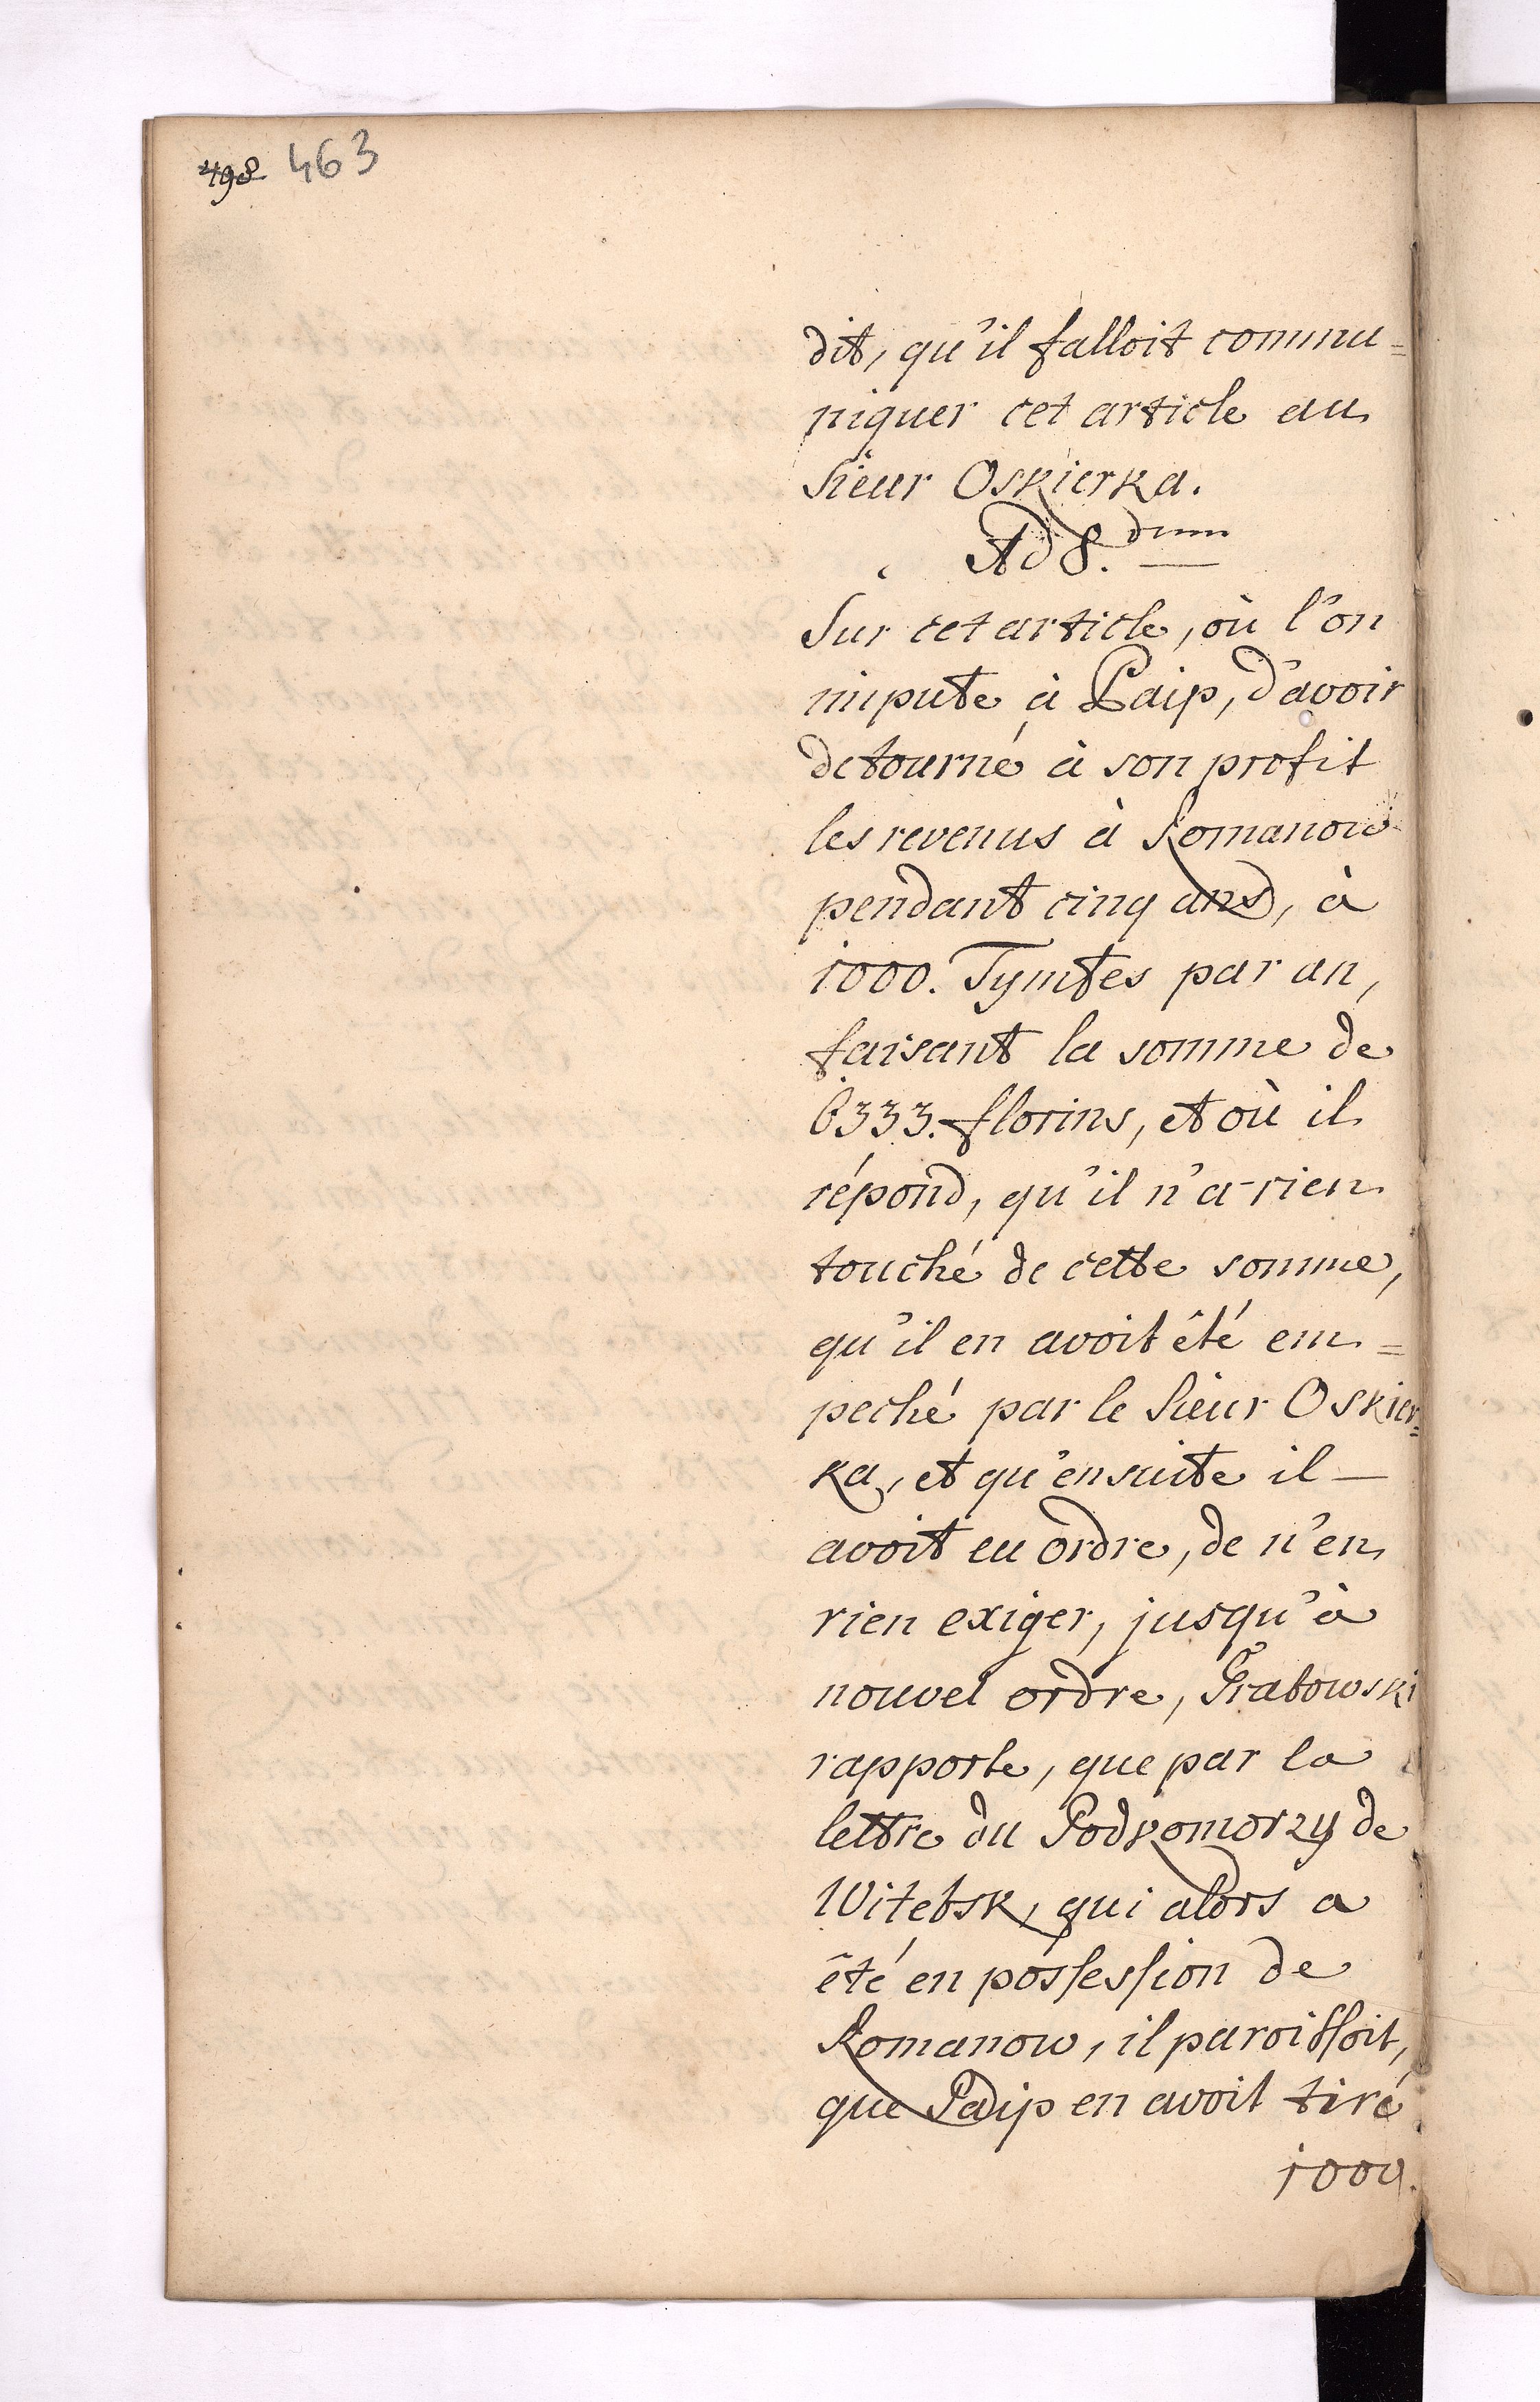 498 463
dit, qu'il falloit commu=
niquer cet article au
Sieur Oskierka.
Ad 8.dum
Sur cet article, où l'on
impute à Paip, d'avoir
detourné à son profit
les revenus à Romanow
pendant cinq ans, à
1000. Tymfes par an,
faisant la somme de
6333. florins, et où il
répond, qu'il n'a rien
touché de cette somme,
qu'il en avoit êté em=
peché par le Sieur Oskier=
ka, et qu'ensuite il
avoit eu ordre, de n'en
rien exiger, jusqu'à
nouvel ordre, Grabowski
rapporte, que par la
lettre du Podkomorzy de
Witebsk, qui alors a
êté en possession de
Romanow, il paroissoit,
que Paip en avoit tiré
1000.